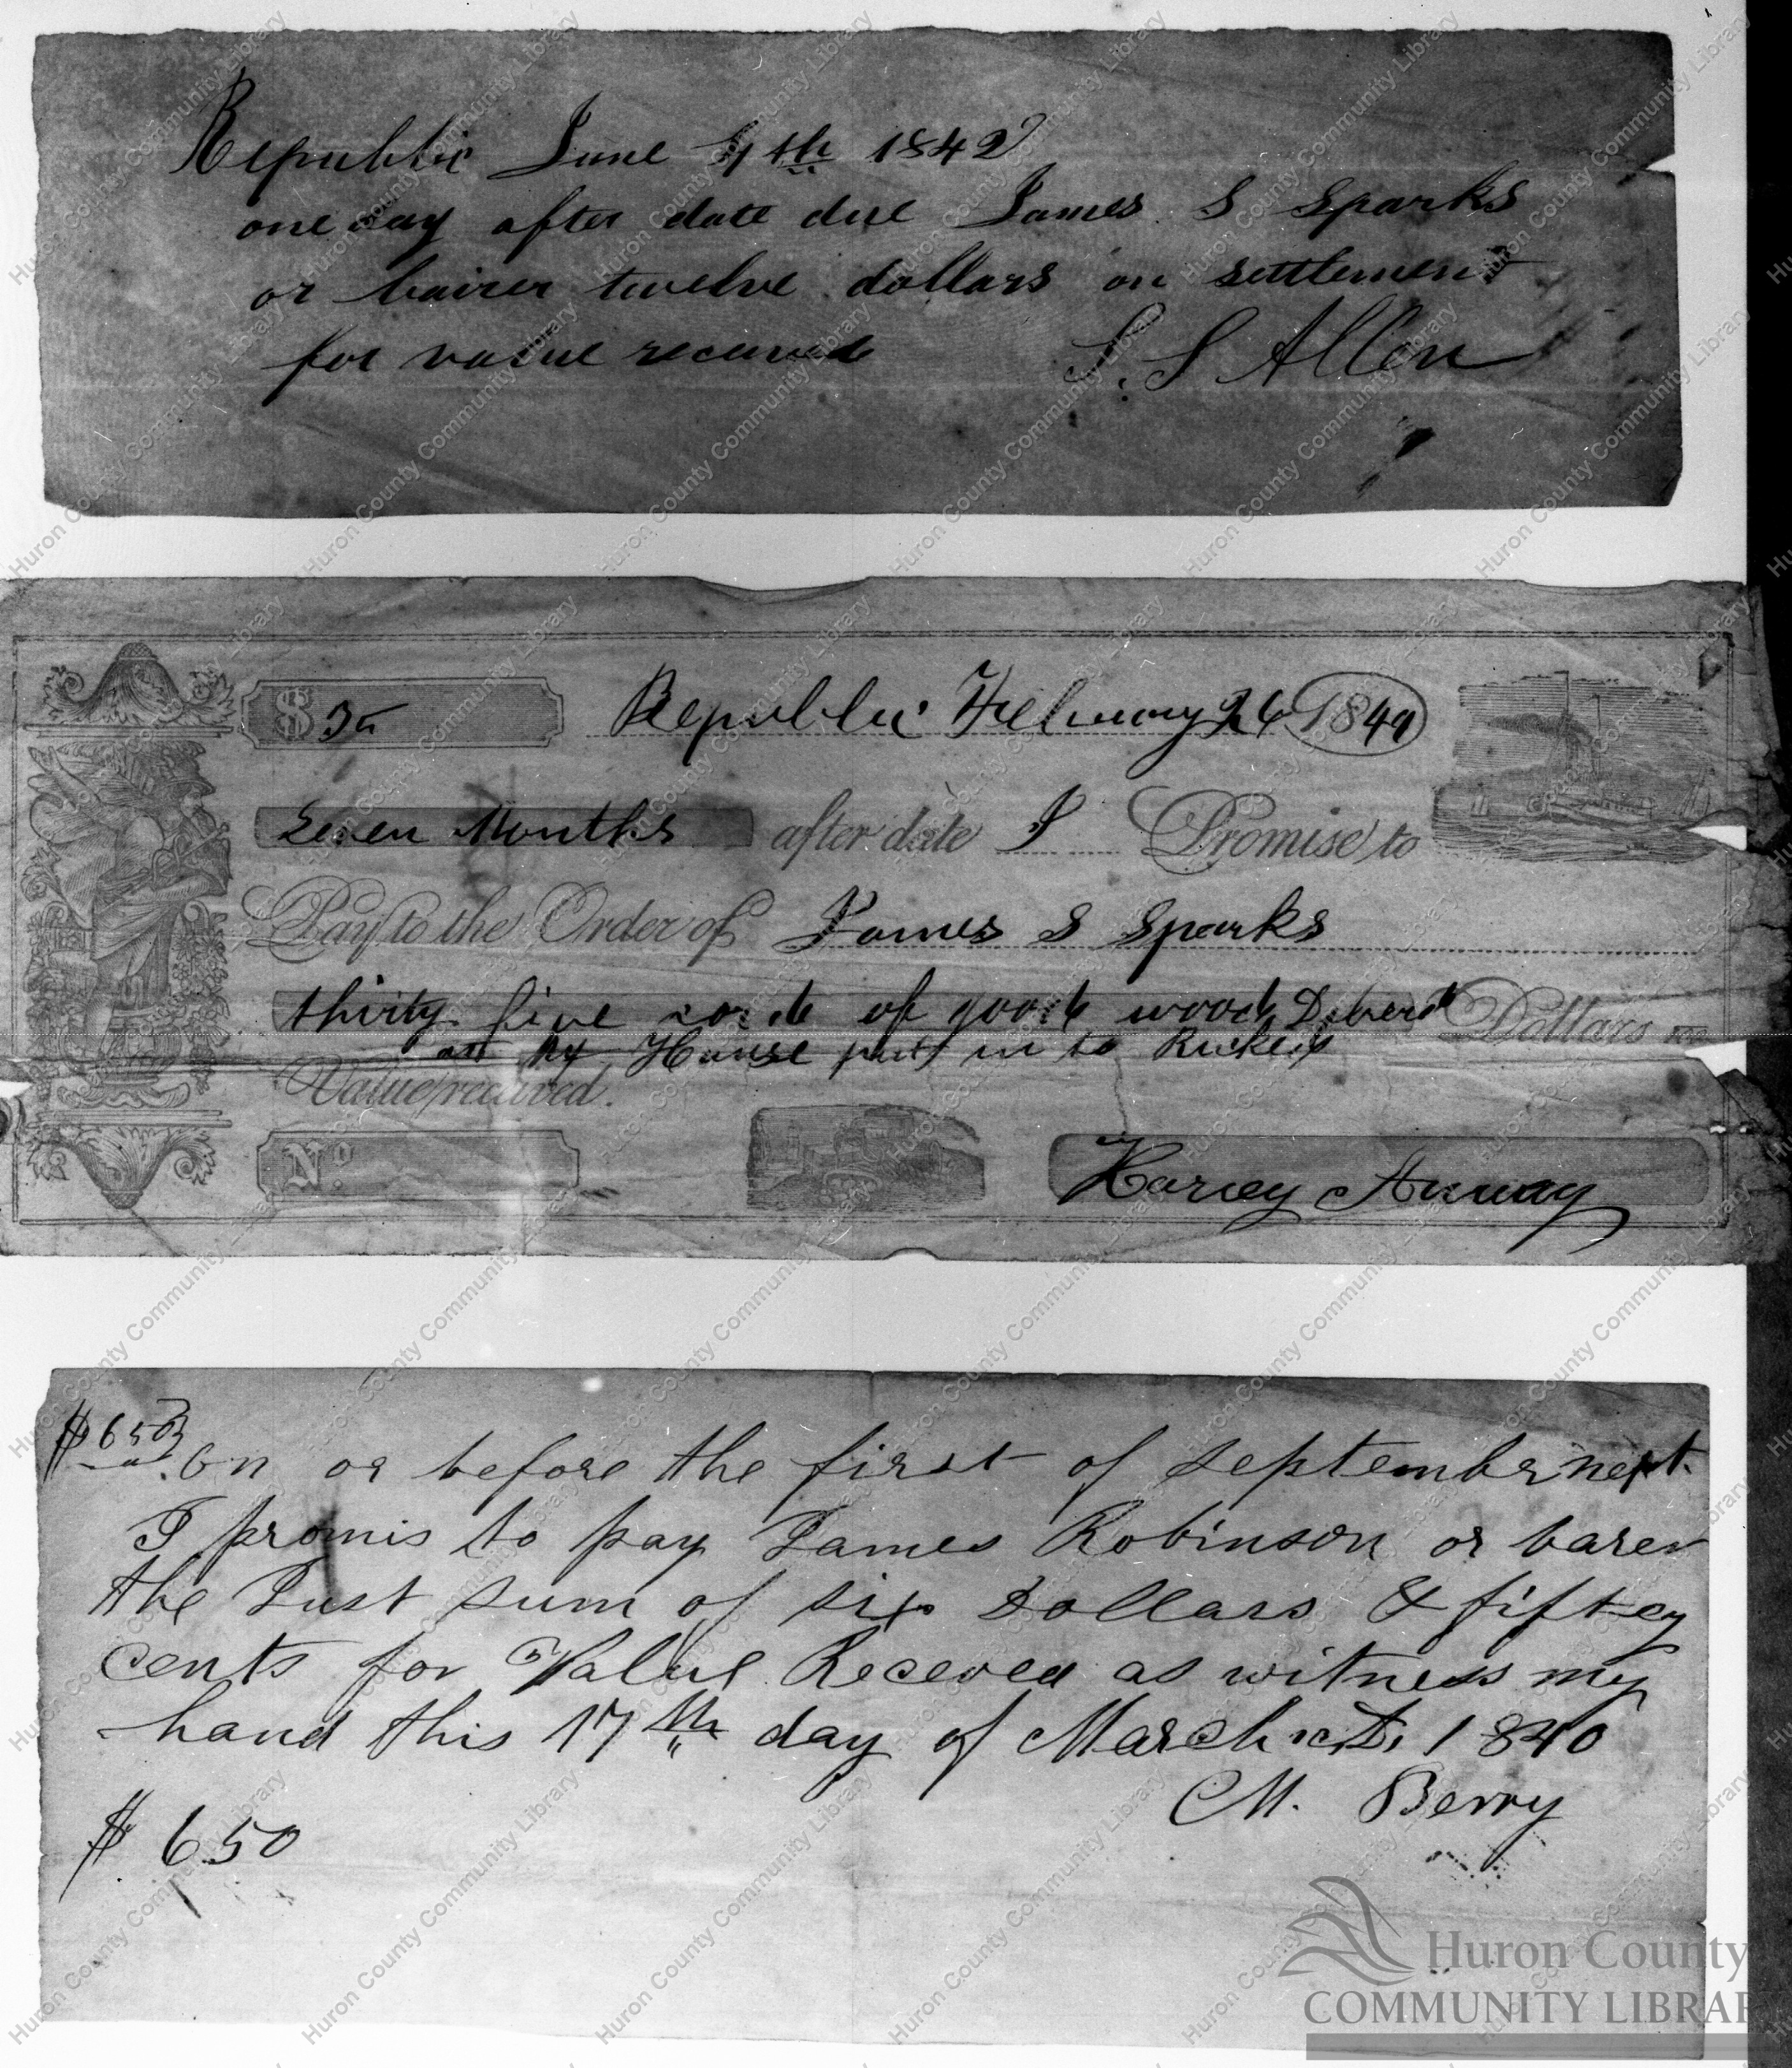 Republic June 4th 1842
one day after date due James S Sparks
or bairer twelve dollars on settlement
for value received S. S Allen
$ 35 Republic February 26 1849
Seven Months after date I Promise to
Pay to the Order of James S Sparks
thirty five cord of good wood Dollars
at My House put in to Rickes
Value received.
No.
Harvey Anway
$650 On or before the first of Septembr next
I promis to pay James Robinson or barer
the Just sum of six Dollars & fiftey
cents for Value Receved as witness my
hand this 17th day of March AD, 1840
M. Berry
$ 6.50
Huron County
COMMUNITY LIBRAR